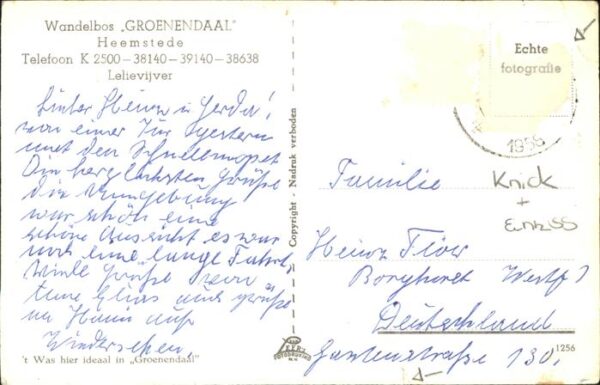 Wandelbos „GROENENDAAL"
Heemstede
Telefoon K 2500—38140—39140—38638
Lelievijver
Lieber Heinz u Gerda!
von einer Tur gestern
mit den Schnellmopet
Die herzlichsten Grüße
Die Umgebung
war schön eine
schöne Aussicht es war
noch eine lange Fahrt,
viele Grüße von
Tante und Grüße
an Heini auf
Wiedersehen,
't Was hier ideaal in „Groenendaal"
Copyright . Nadruk verboden
FOTODRUKKO
N.V.
Echte
fotografie
1958
Knick
+
Einriss
Familie
Heinz
Borghorst Westf
Deutschland
Gartenstraße 130,
1256